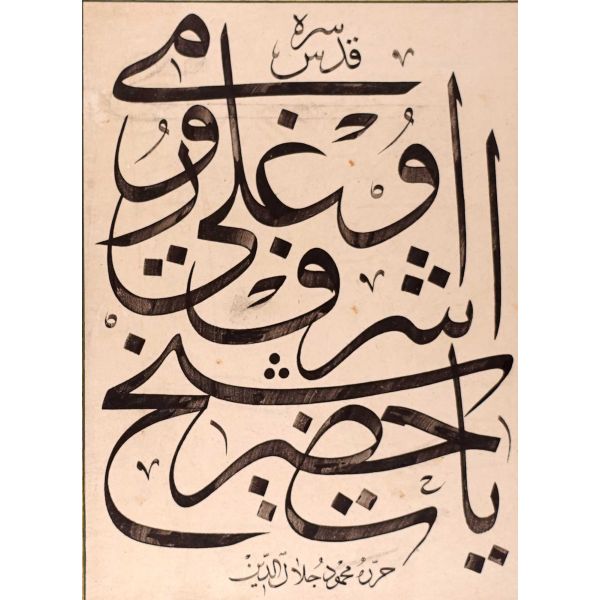 يا حضرت شيخ
اشرف اوغلي رومي
قدس سره
حرره محمود جلال الدين